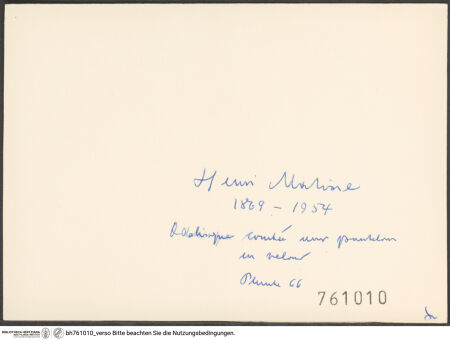 Henri Matisse
1869 - 1954
Odalisque couchée pantalon
en velour
66
761010
BIBLIOTHECA HERTZIANA
bh761010_verso Bitte beachten Sie die Nutzungsbedingungen.